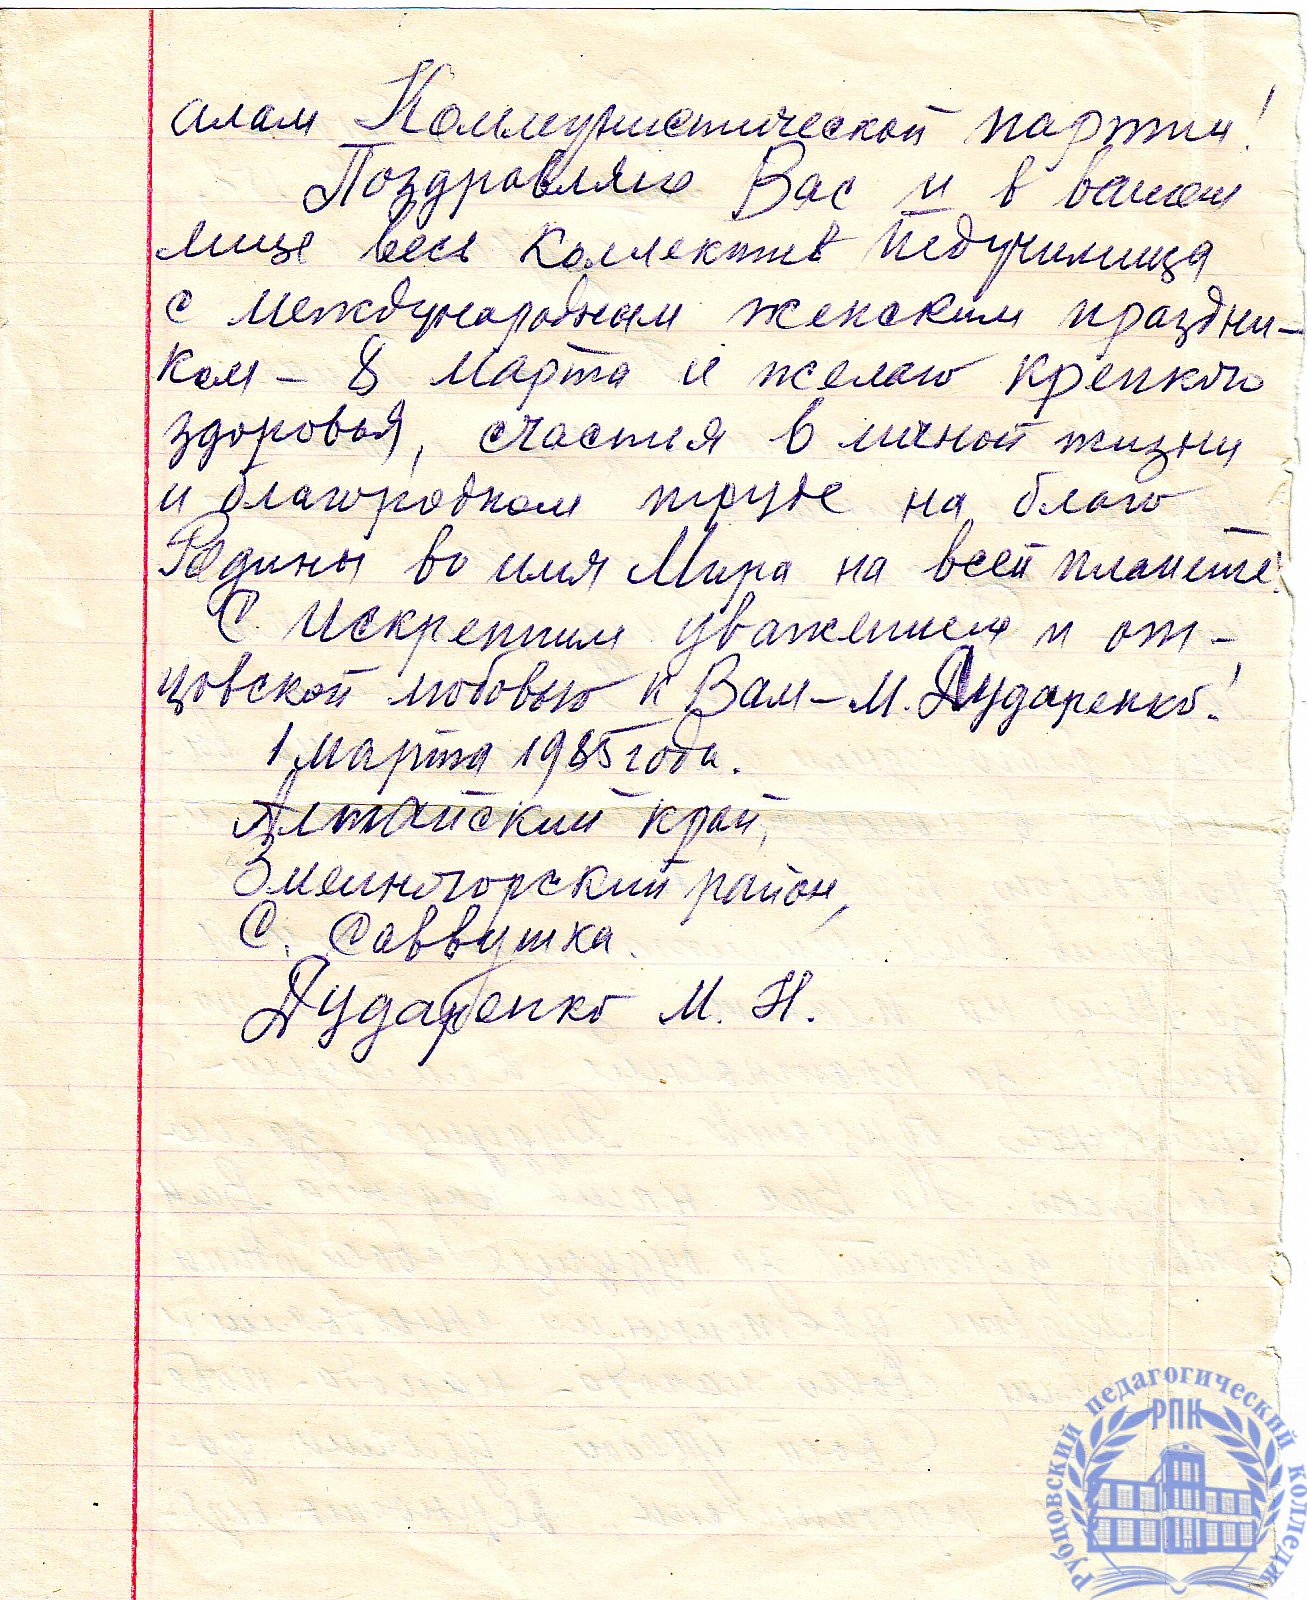 алам Коммунистической партии!
Поздравляю Вас и в вашем
лице весь коллектив педучилища
с международным женским праздни-
ком - 8 марта и желаю крепкого
здоровья, счастия в личной жизни
и благородном труде на благо
Родины во имя Мира на всей планете!
С искренним уважением и от-
цовской любовью к Вам - М. Дударенко!
1 марта 1985 года.
Алтайский край,
Змеиногорский район,
С. Саввушка.
Дударенко М. Н.
Рубцовский педагогический колледж
РПК